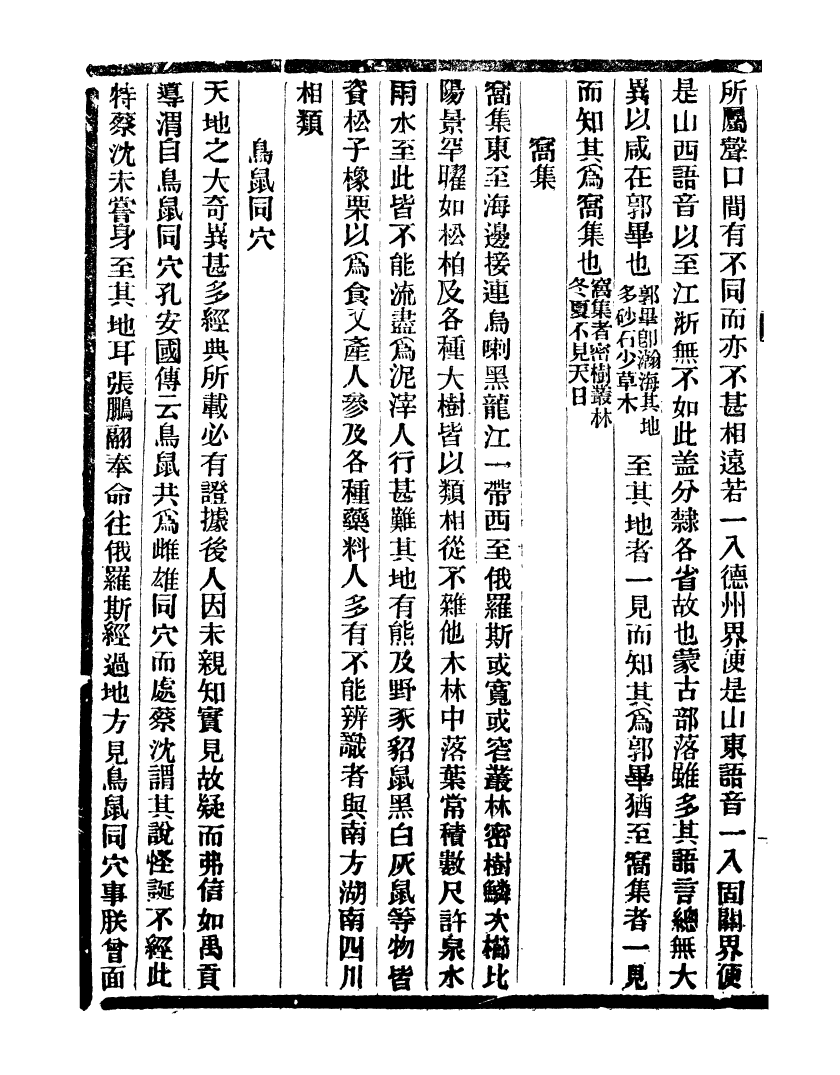 所屬聲口間有不同而亦不甚相遠若一入德州界便是山東語音一入固關界便
是山西語音以至江浙無不如此盖分隸各省故也蒙古部落雖多其語言總無大
異以咸在郭畢也郭畢卽瀚海其地多砂石少草木至其地者一見而知其爲郭畢猶至窩集者一見
而知其爲窩集也窩集者密樹叢林冬夏不見天日
窩集
窩集東至海邊接連烏喇黑龍江一帶西至俄羅斯或寬或窄叢林密樹鱗次櫛比
陽景罕曜如松柏及各種大樹皆以類相從不雜他木林中落葉常積數尺許泉水
雨水至此皆不能流盡爲泥滓人行甚難其地有熊及野豕貂鼠黑白灰鼠等物皆
資松子橡栗以爲食又產人參及各種藥料人多有不能辨識者與南方湖南四川
相類
鳥鼠同穴
天地之大奇異甚多經典所載必有證據後人因未親知實見故疑而弗信如禹貢
導渭自鳥鼠同穴孔安國傳云鳥鼠共爲雌雄同穴而處蔡沈謂其說怪誕不經此
特蔡沈未嘗身至其地耳張鵬翮奉命往俄羅斯經過地方見鳥鼠同穴事朕曾面